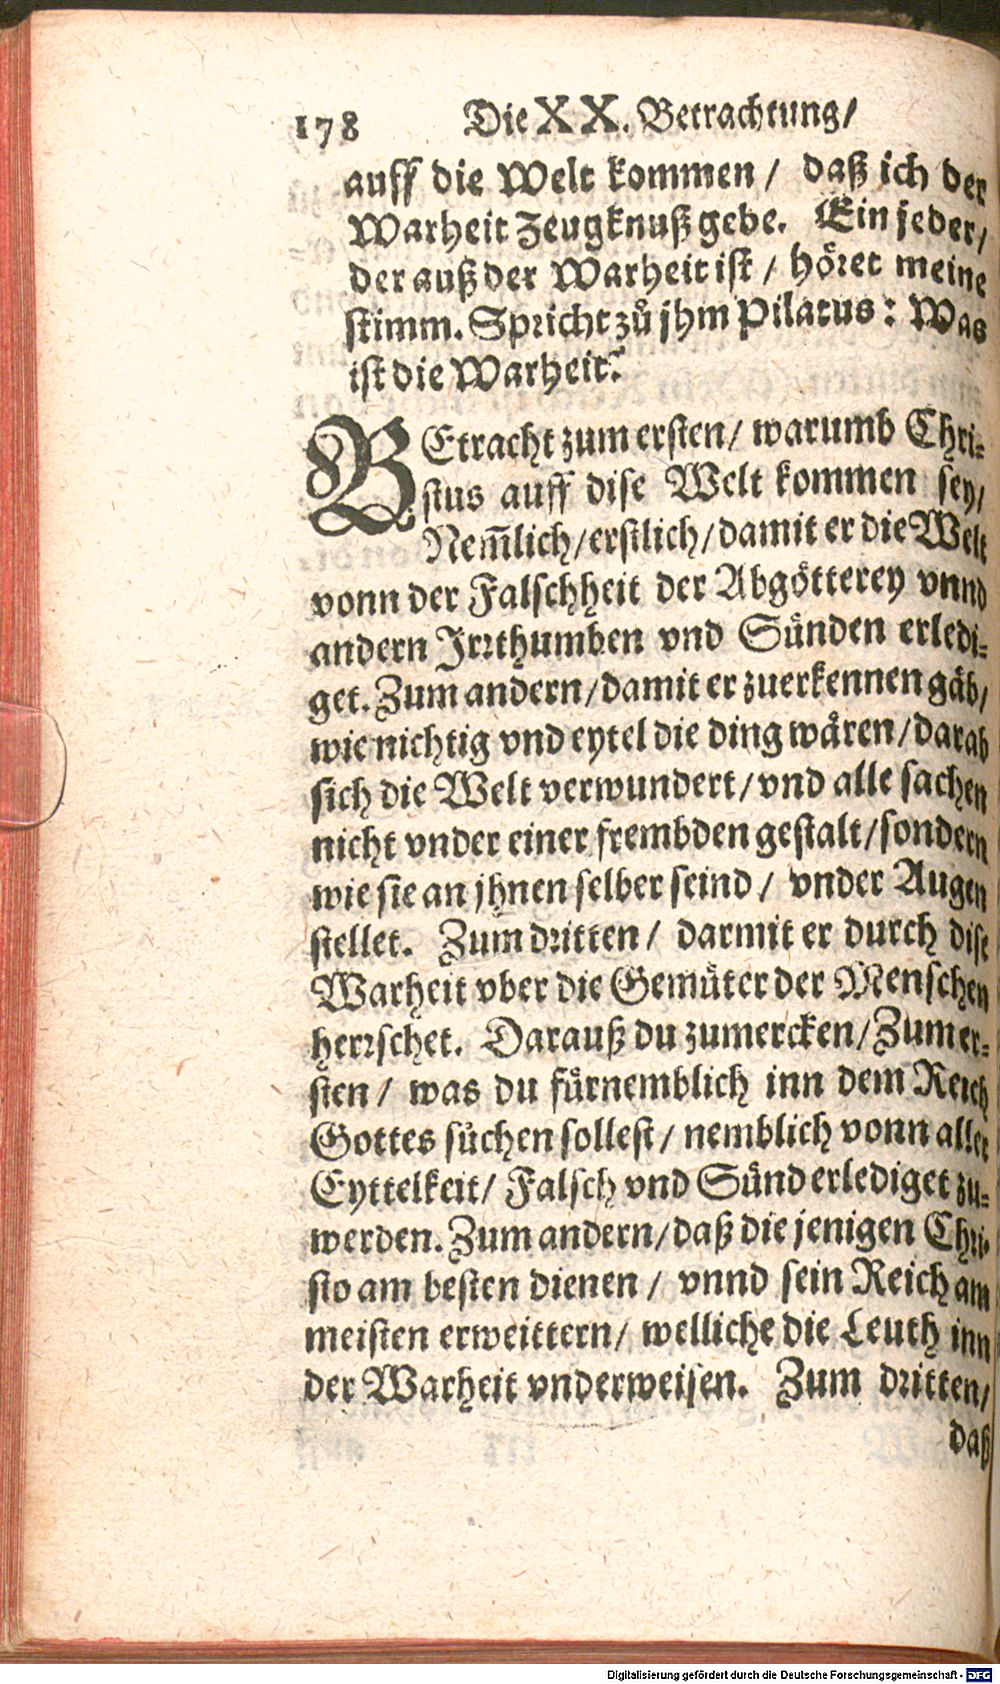 178 Die XX. Betrachtung/
auff die Welt kommen / daß ich der
Warheit Zeugknuß gebe. Ein jeder/
der auß der Warheit ist / höret meine
stimm. Spricht zů jhm Pilatus: Was
ist die Warheit?
BEtracht zum ersten/ warumb Chri-
stus auff dise Welt kommen sey/
Nem̃lich/erstlich/damit er die Welt
vonn der Falschheit der Abgötterey vnnd
andern Irrthumben vnd Sünden erledi-
get. Zum andern/damit er zuerkennen gäb/
wie nichtig vnd eytel die ding wären/darab
sich die Welt verwundert/vnd alle sachen
nicht vnder einer frembden gestalt/sondern
wie sie an jhnen selber seind / vnder Augen
stellet. Zum dritten / darmit er durch dise
Warheit vber die Gemüter der Menschen
herrschet. Darauß du zumercken/Zum er-
sten / was du fürnemblich inn dem Reich
Gottes sůchen sollest / nemblich vonn aller
Eyttelkeit/ Falsch vnd Sünd erlediget zu-
werden. Zum andern/daß die jenigen Chri-
sto am besten dienen / vnnd sein Reich am
meisten erweittern/ welliche die Leuth inn
der Warheit vnderweisen. Zum dritten/
daß
Digitalisierung gefördert durch die Deutsche Forschungsgemeinschaft - DFG